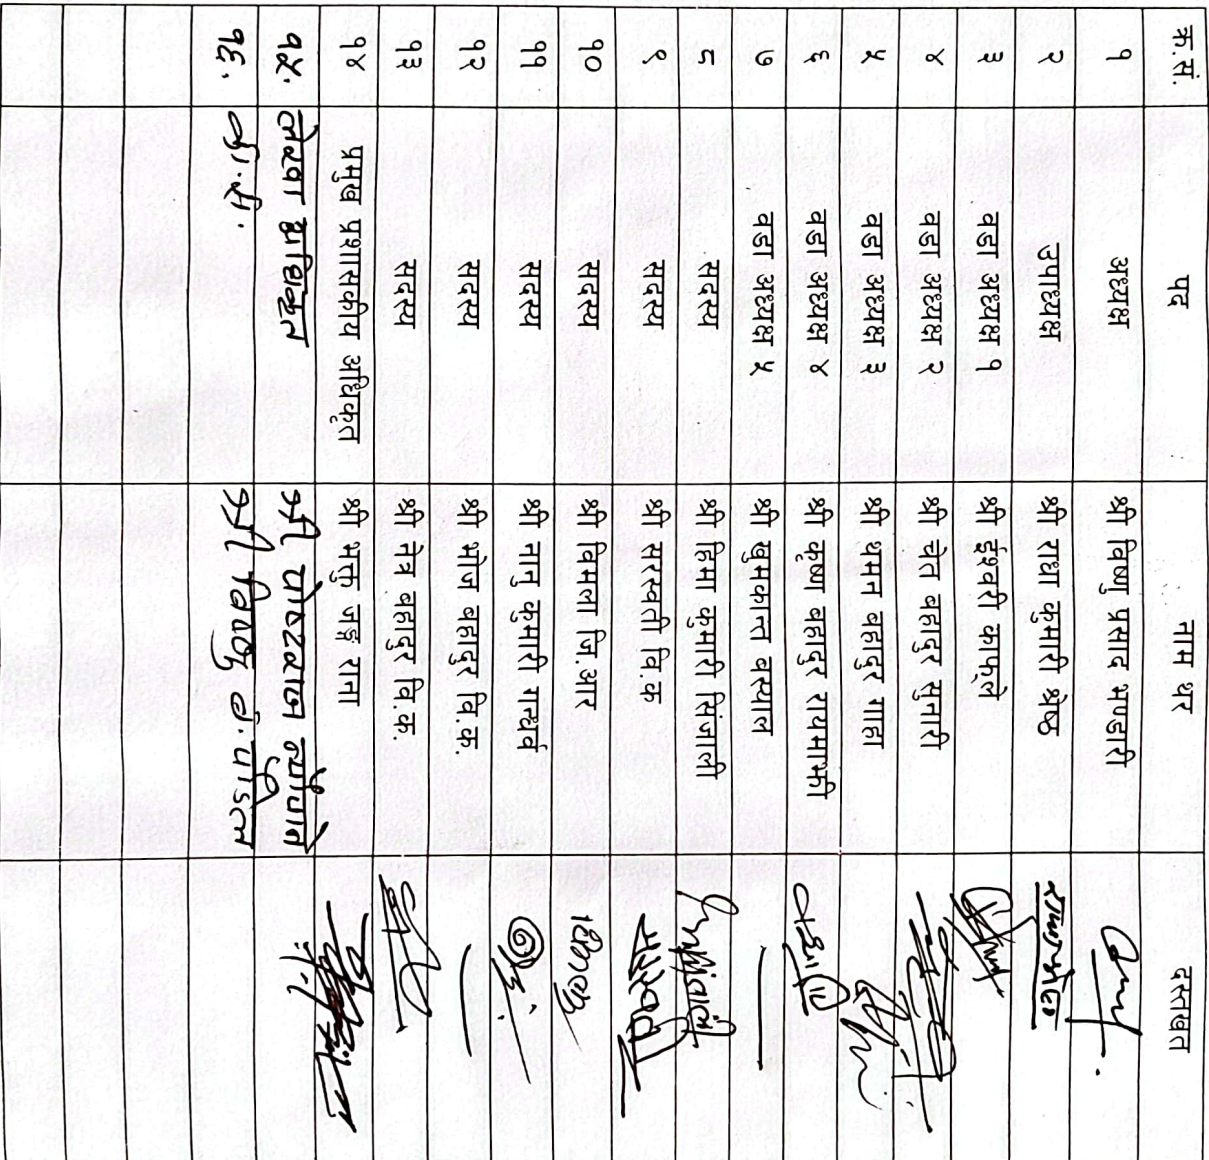 क्र.सं. पद नाम थर दस्तखत
१ अध्यक्ष श्री विष्णु प्रसाद भण्डारी
२ उपाध्यक्ष श्री राधा कुमारी श्रेष्ठ
३ वडा अध्यक्ष १ श्री ईश्वरी काफ्ले
४ वडा अध्यक्ष २ श्री चेत बहादुर सुनारी
५ वडा अध्यक्ष ३ श्री भुमन बहादुर गाहा
६ वडा अध्यक्ष ४ श्री कृष्ण बहादुर रायमाझी
७ वडा अध्यक्ष ५ श्री खुमकान्त बस्याल
८ सदस्य श्री हिमा कुमारी सिंजाली
९ सदस्य श्री सरस्वती वि.क
१० सदस्य श्री विमला जि.आर
११ सदस्य श्री नानु कुमारी गन्धर्व
१२ सदस्य श्री भोज बहादुर वि.क.
१३ सदस्य श्री नेत्र बहादुर वि.क.
१४ प्रमुख प्रशासकीय अधिकृत श्री भक्त जङ्ग राना
१५. लेखा अधिकृत श्री पोस्टराज न्यौपाने
१६. श्री विष्णु व. पौडेल